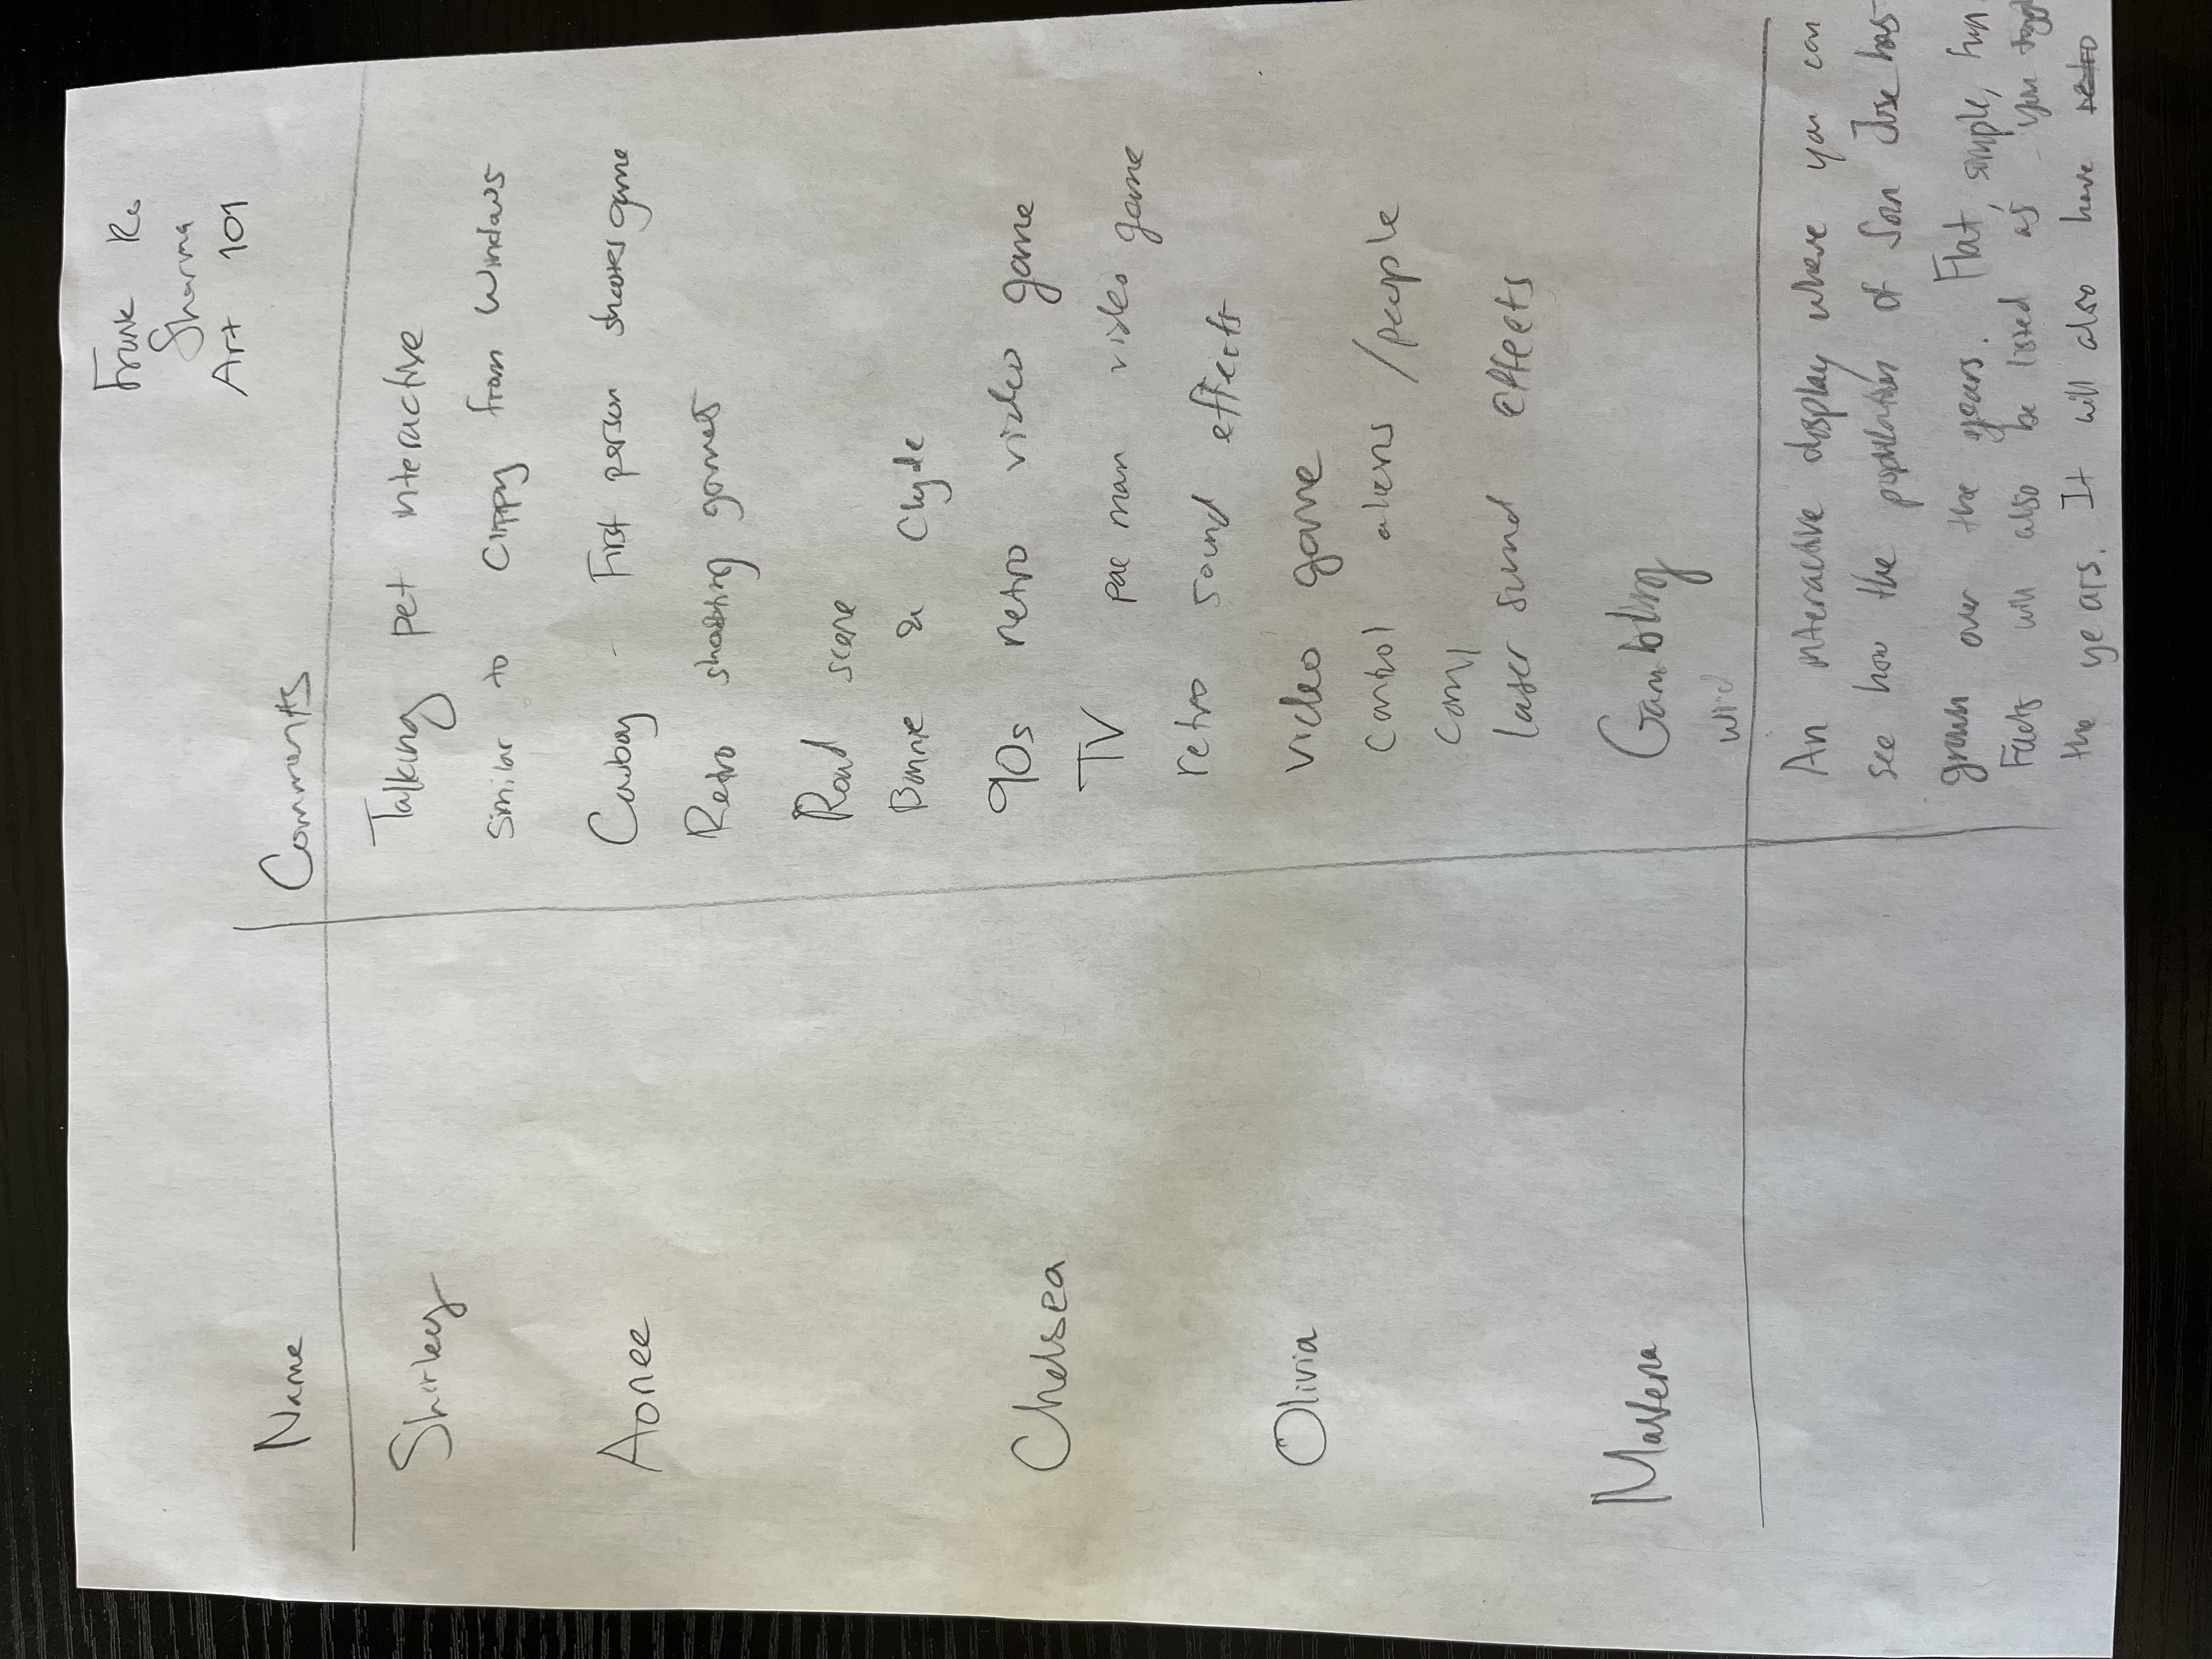 Frank Ko
Sharma
Art 101
Name Comments
Shirley Talking pet interactive
Similar to Clippy from Windows
Aonee Cowboy - First person shooter game
Retro shooting games
Road scene
Bonnie & Clyde
Chelsea 90s retro video game
TV pac man video game
retro sound effects
Olivia video game
control aliens / people
laser sound effects
Gambling
An interactive display where you can
see how the population of San Jose has
grown over the years. Flat, simple, fun
Facts will also be listed as you
the years. It will also have retro